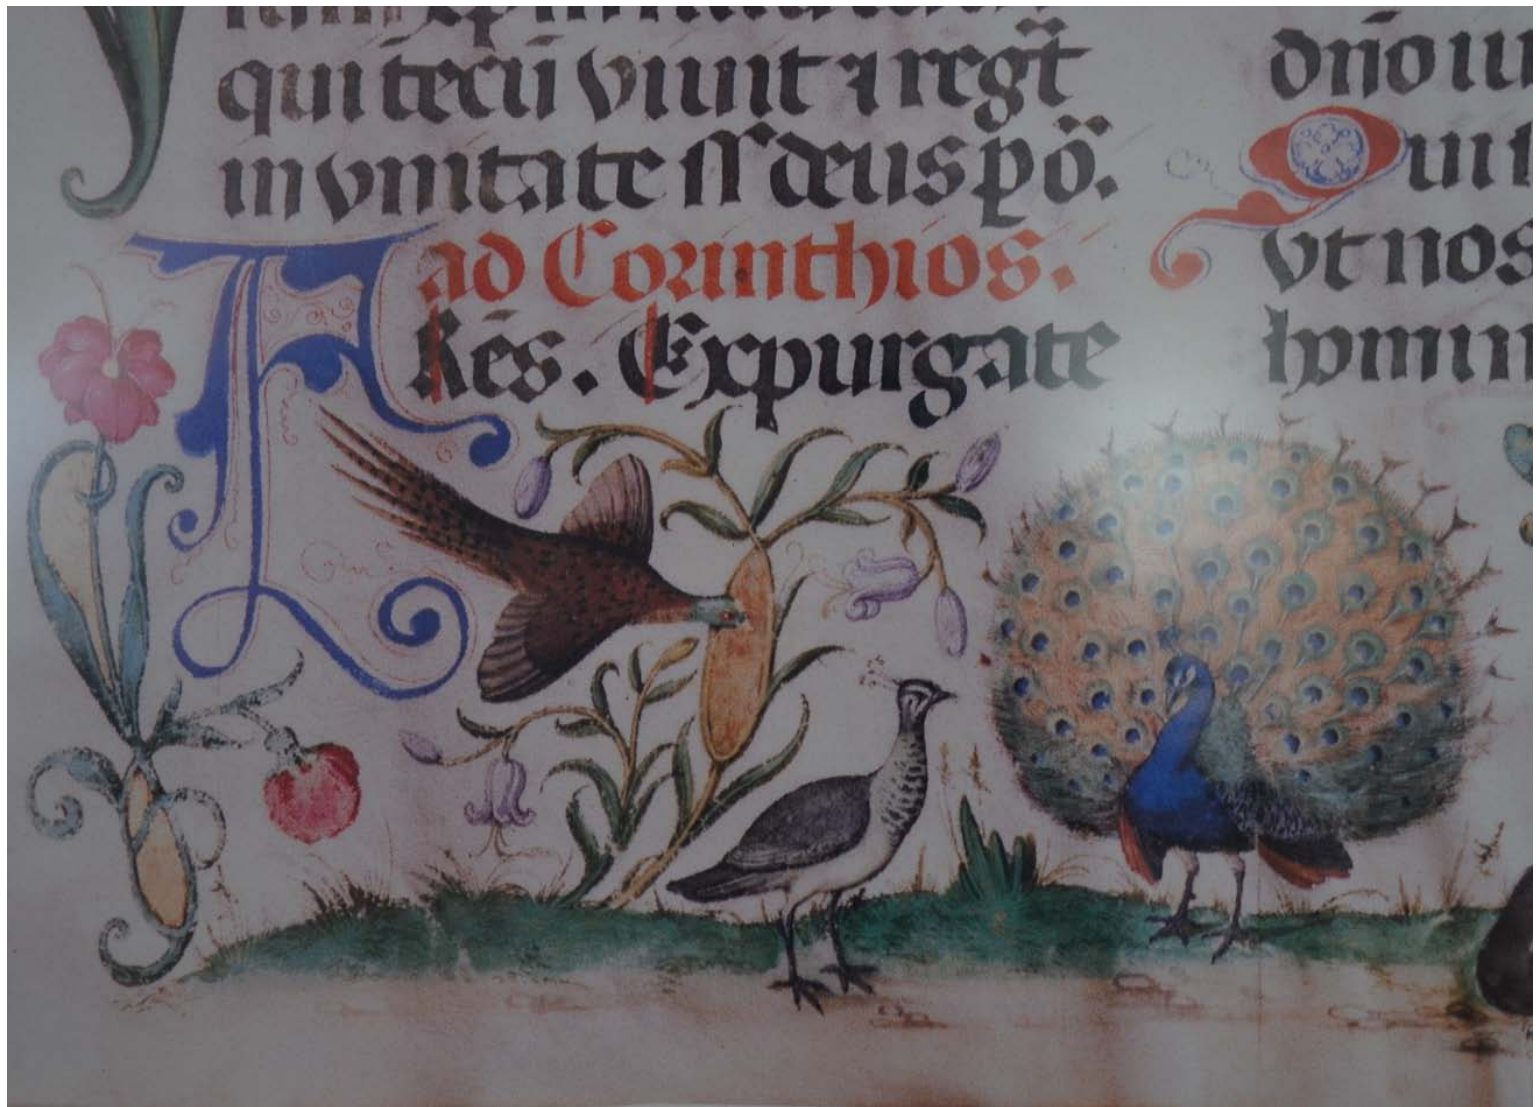 qui tecū viuit ⁊ regt̄
in vnitate ſſ deus p̱ oö.
ad Corinthios.
FRēs. Expurgate
dn̄o iu
Qui
vt nos
homin